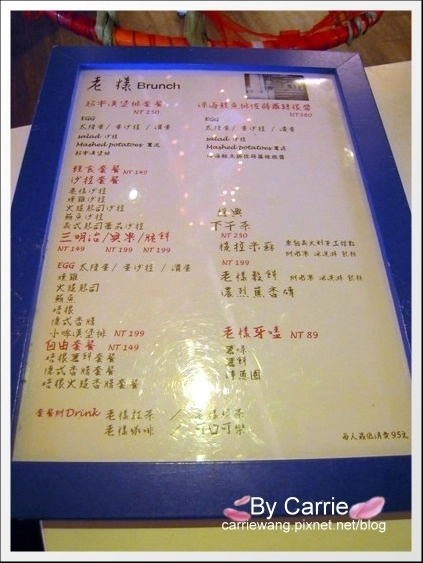 老樣 Brunch
招牌漢堡排套餐
NT 250
EGG
太陽蛋 / 蛋沙拉 / 滑蛋
salad 沙拉
Mashed potatoes 薯泥
招牌漢堡排
NT 380
EGG
太陽蛋 / 蛋沙拉 / 滑蛋
salad 沙拉
Mashed potatoes 薯泥
輕食套餐 NT 149
沙拉套餐
燻雞沙拉
火腿起司沙拉
鮪魚沙拉
三明治/貝果/脆餅
NT 149 NT 199 NT 199
EGG 太陽蛋 / 蛋沙拉 / 滑蛋
燻雞
火腿起司
鮪魚
培根
德式香腸
小咪漢堡排 NT 199
自由套餐 NT 149
培根薯餅套餐
德式香腸套餐
培根火腿香腸套餐
經典
下午茶
NT 250
提拉米蘇
老樣鬆餅
濃烈蕉香磚
老樣牙嗑 NT 89
薯餅
套餐附Drink 老樣紅茶 /
老樣咖啡 / 可口可樂
每人最低消費 95元
By Carrie
carriewang.pixnet.net/blog